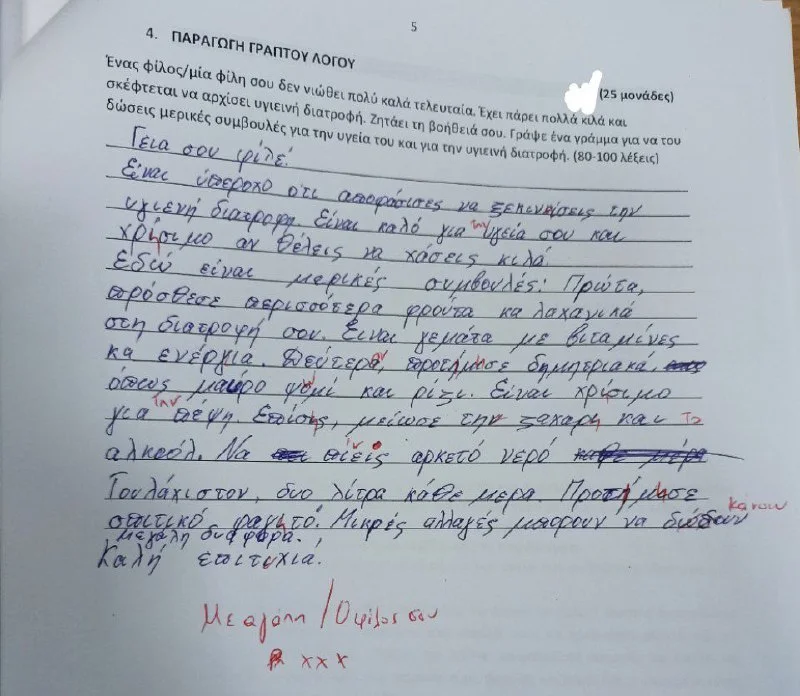 5
4. ΠΑΡΑΓΩΓΗ ΓΡΑΠΤΟΥ ΛΟΓΟΥ
(25 μονάδες)
Ένας φίλος/μία φίλη σου δεν νιώθει πολύ καλά τελευταία. Έχει πάρει πολλά κιλά και
σκέφτεται να αρχίσει υγιεινή διατροφή. Ζητάει τη βοήθειά σου. Γράψε ένα γράμμα για να του
δώσεις μερικές συμβουλές για την υγεία του και για την υγιεινή διατροφή. (80-100 λέξεις)
Γεια σου φίλε!
Είναι ύπεροχο ότι αποφάσισες να ξεκινήσεις την
υγιενή διατροφη. Είναι καλό για την υγεία σου και
χρήσιμο αν θέλεις να χάσεις κιλά.
Εδώ είναι μερικές συμβουλές: Πρώτα,
πρόσθεσε περισσότερα φρούτα κα λαχανικά
στη διατροφή σου. Είναι γεμάτα με βιταμίνες
κα ενέργια. Δεύτερον, προτίμησε δημητριακά,
όπως μαύρο ψωμί και ρίζι. Είναι χρήσιμο
για την πέψη. Επίσης, μείωσε την ζαχαρη και το
αλκοόλ. Να πίνεις αρκετό νερό
Τουλάχιστον, δυο λίτρα κάθε μερα. Προτίμησε
σπιτικό φαγητό. Μικρές αλλαγές μπορουν να κάνουν
μεγάλη διαφορα.
Καλή επιτυχια.
Με αγάπη / Ο φίλος σου
xxx